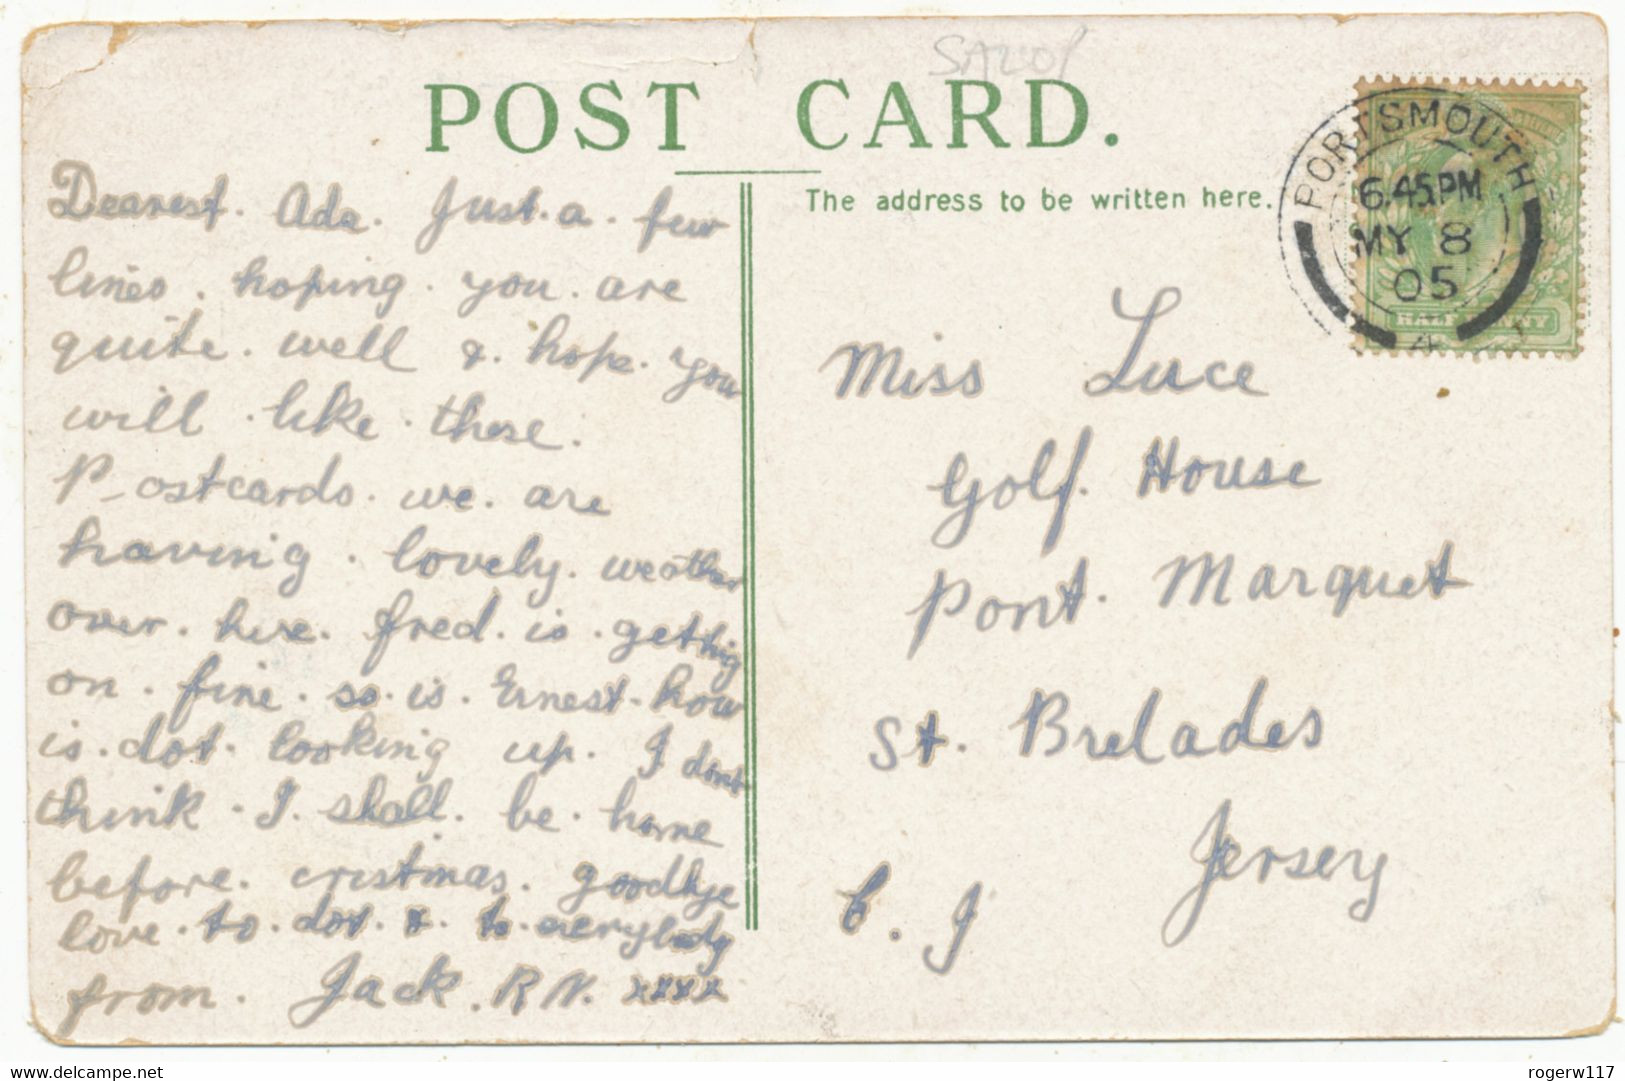 SALOP
POST CARD.
The address to be written here.
PORTSMOUTH
6.45PM
MY 8
05
4
HALFPENNY
Dearest. Ada. Just. a. few
lines. hoping. you. are
quite. well & hope. you
will. like. these.
P-ostcards. we. are
having. lovely. weather
over. here. fred. is. getting
on. fine. so. is. Ernest. how
is. dot. looking up. I dont
think. I. shall. be. home
before. cristmas. goodbye
love. to. dot. & to. everybody
from. Jack. R N. xxxx
Miss Luce
Golf. House
Pont. Marquet
St. Brelades
Jersey
C. I
delcampe.net
rogerw117